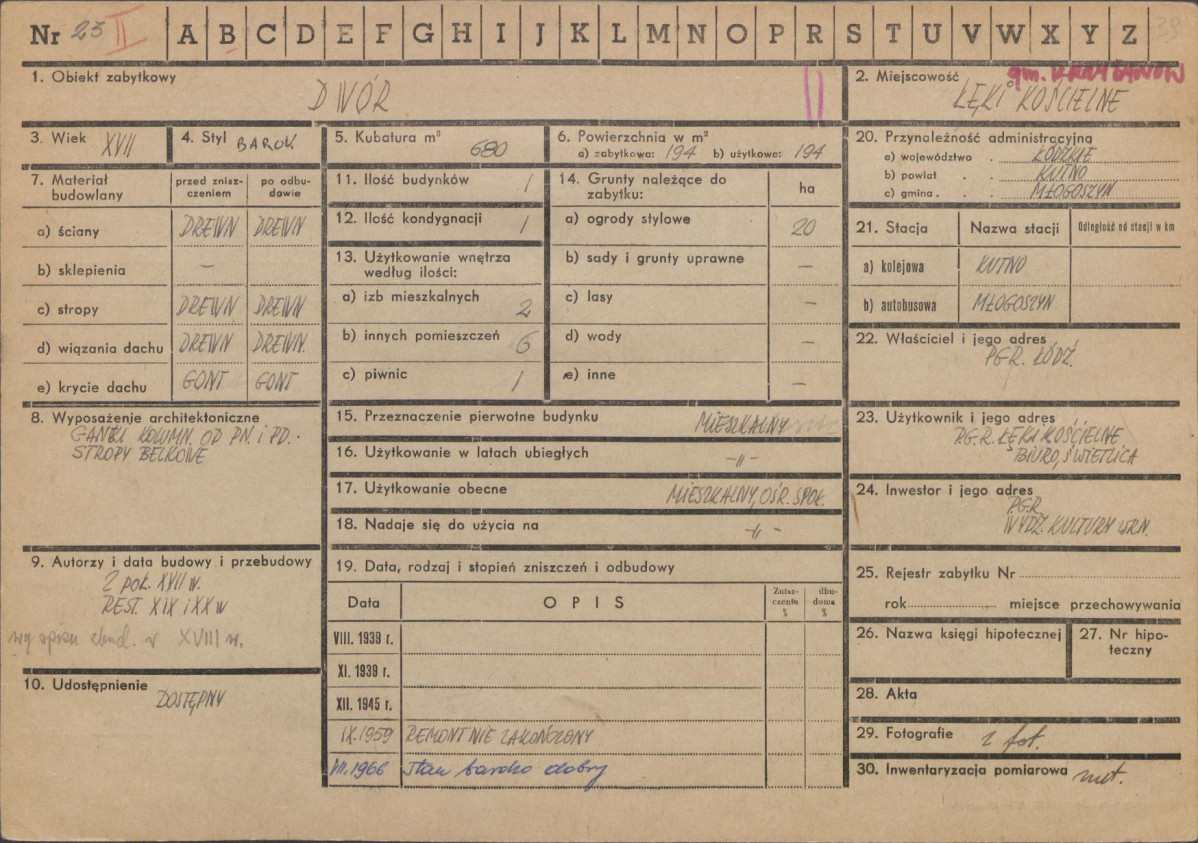 Nr 23 II A B C D E F G H I J K L M N O P R S T U V W X Y Z 39
1. Obiekt zabytkowy
DWÓR
II
2. Miejscowość gm. KRZYŻANÓW
ŁĘKI KOŚCIELNE
3. Wiek XVII
4. Styl BAROK
5. Kubatura m³ 680
6. Powierzchnia w m²
a) zabytkowa: 194 b) użytkowa: 194
20. Przynoleżność administracyjna
a) województwo . ŁÓDZKIE
b) powiat . . KUTNO
c) gmina . . . MŁOGOSZYN
7. Materiał budowlany
przed znisz-
czeniem
po odbu-
dowie
a) ściany DREWN DREWN
b) sklepienia –
c) stropy DREWN DREWN
d) wiązania dachu DREWN. DREWN.
e) krycie dachu GONT GONT
11. Ilość budynków 1
12. Ilość kondygnacji 1
13. Użytkowanie wnętrza
według ilości:
a) izb mieszkalnych 2
b) innych pomieszczeń 6
c) piwnic 1
14. Grunty należące do
zabytku:
ha
a) ogrody stylowe 20
b) sady i grunty uprawne –
c) lasy –
d) wody –
e) inne –
21. Stacja Nazwa stacji Odległość od stacji w km
a) kolejowa KUTNO
b) autobusowa MŁOGOSZYN
22. Właściciel i jego adres
PGR. ŁÓDŹ
8. Wyposażenie architektoniczne
GANEK KOLUMN. OD PN. i PD.
STROPY BELKOWE
15. Przeznaczenie pierwotne budynku MIESZKALNY
16. Użytkowanie w latach ubiegłych -"-
17. Użytkowanie obecne MIESZKALNY, OŚR. SPOŁ.
18. Nadaje się do użycia na -"-
23. Użytkownik i jego adres
P.G.R. ŁĘKI KOŚCIELNE
BIURO, ŚWIETLICA
24. Inwestor i jego adres
P.G.R.
WYDZ. KULTURY WRN.
9. Autorzy i data budowy i przebudowy
2 POŁ. XVII W.
REST. XIX i XX W
wg spisu zbud. w XVIII w.
10. Udostępnienie
DOSTĘPNY
19. Data, rodzaj i stopień zniszczeń i odbudowy
Data OPIS
Znisz-
czenia
%
dbu-
dowa
%
VIII. 1939 r.
XI. 1939 r.
XII. 1945 r.
IX.1959 REMONT NIE ZAKOŃCZONY
VII.1966 Stan bardzo dobry
25. Rejestr zabytku Nr
rok miejsce przechowywania
26. Nazwa księgi hipotecznej
27. Nr hipo-
teczny
28. Akta
29. Fotografie 2 fot.
30. Inwentaryzacja pomiarowa